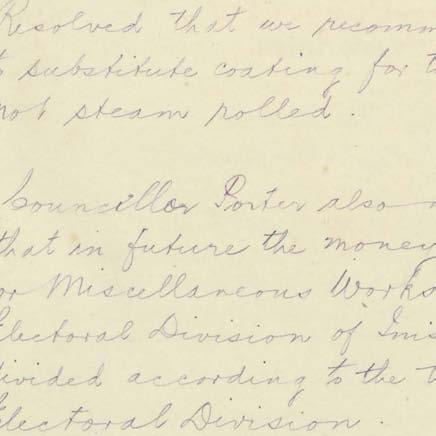 Resolved that we recomm
to substitute coating for t
not steam rolled.
Councillor Porter also
that in future the money
or Miscellaneous Works
Electoral Division of Inis
divided according to the t
Electoral Division.